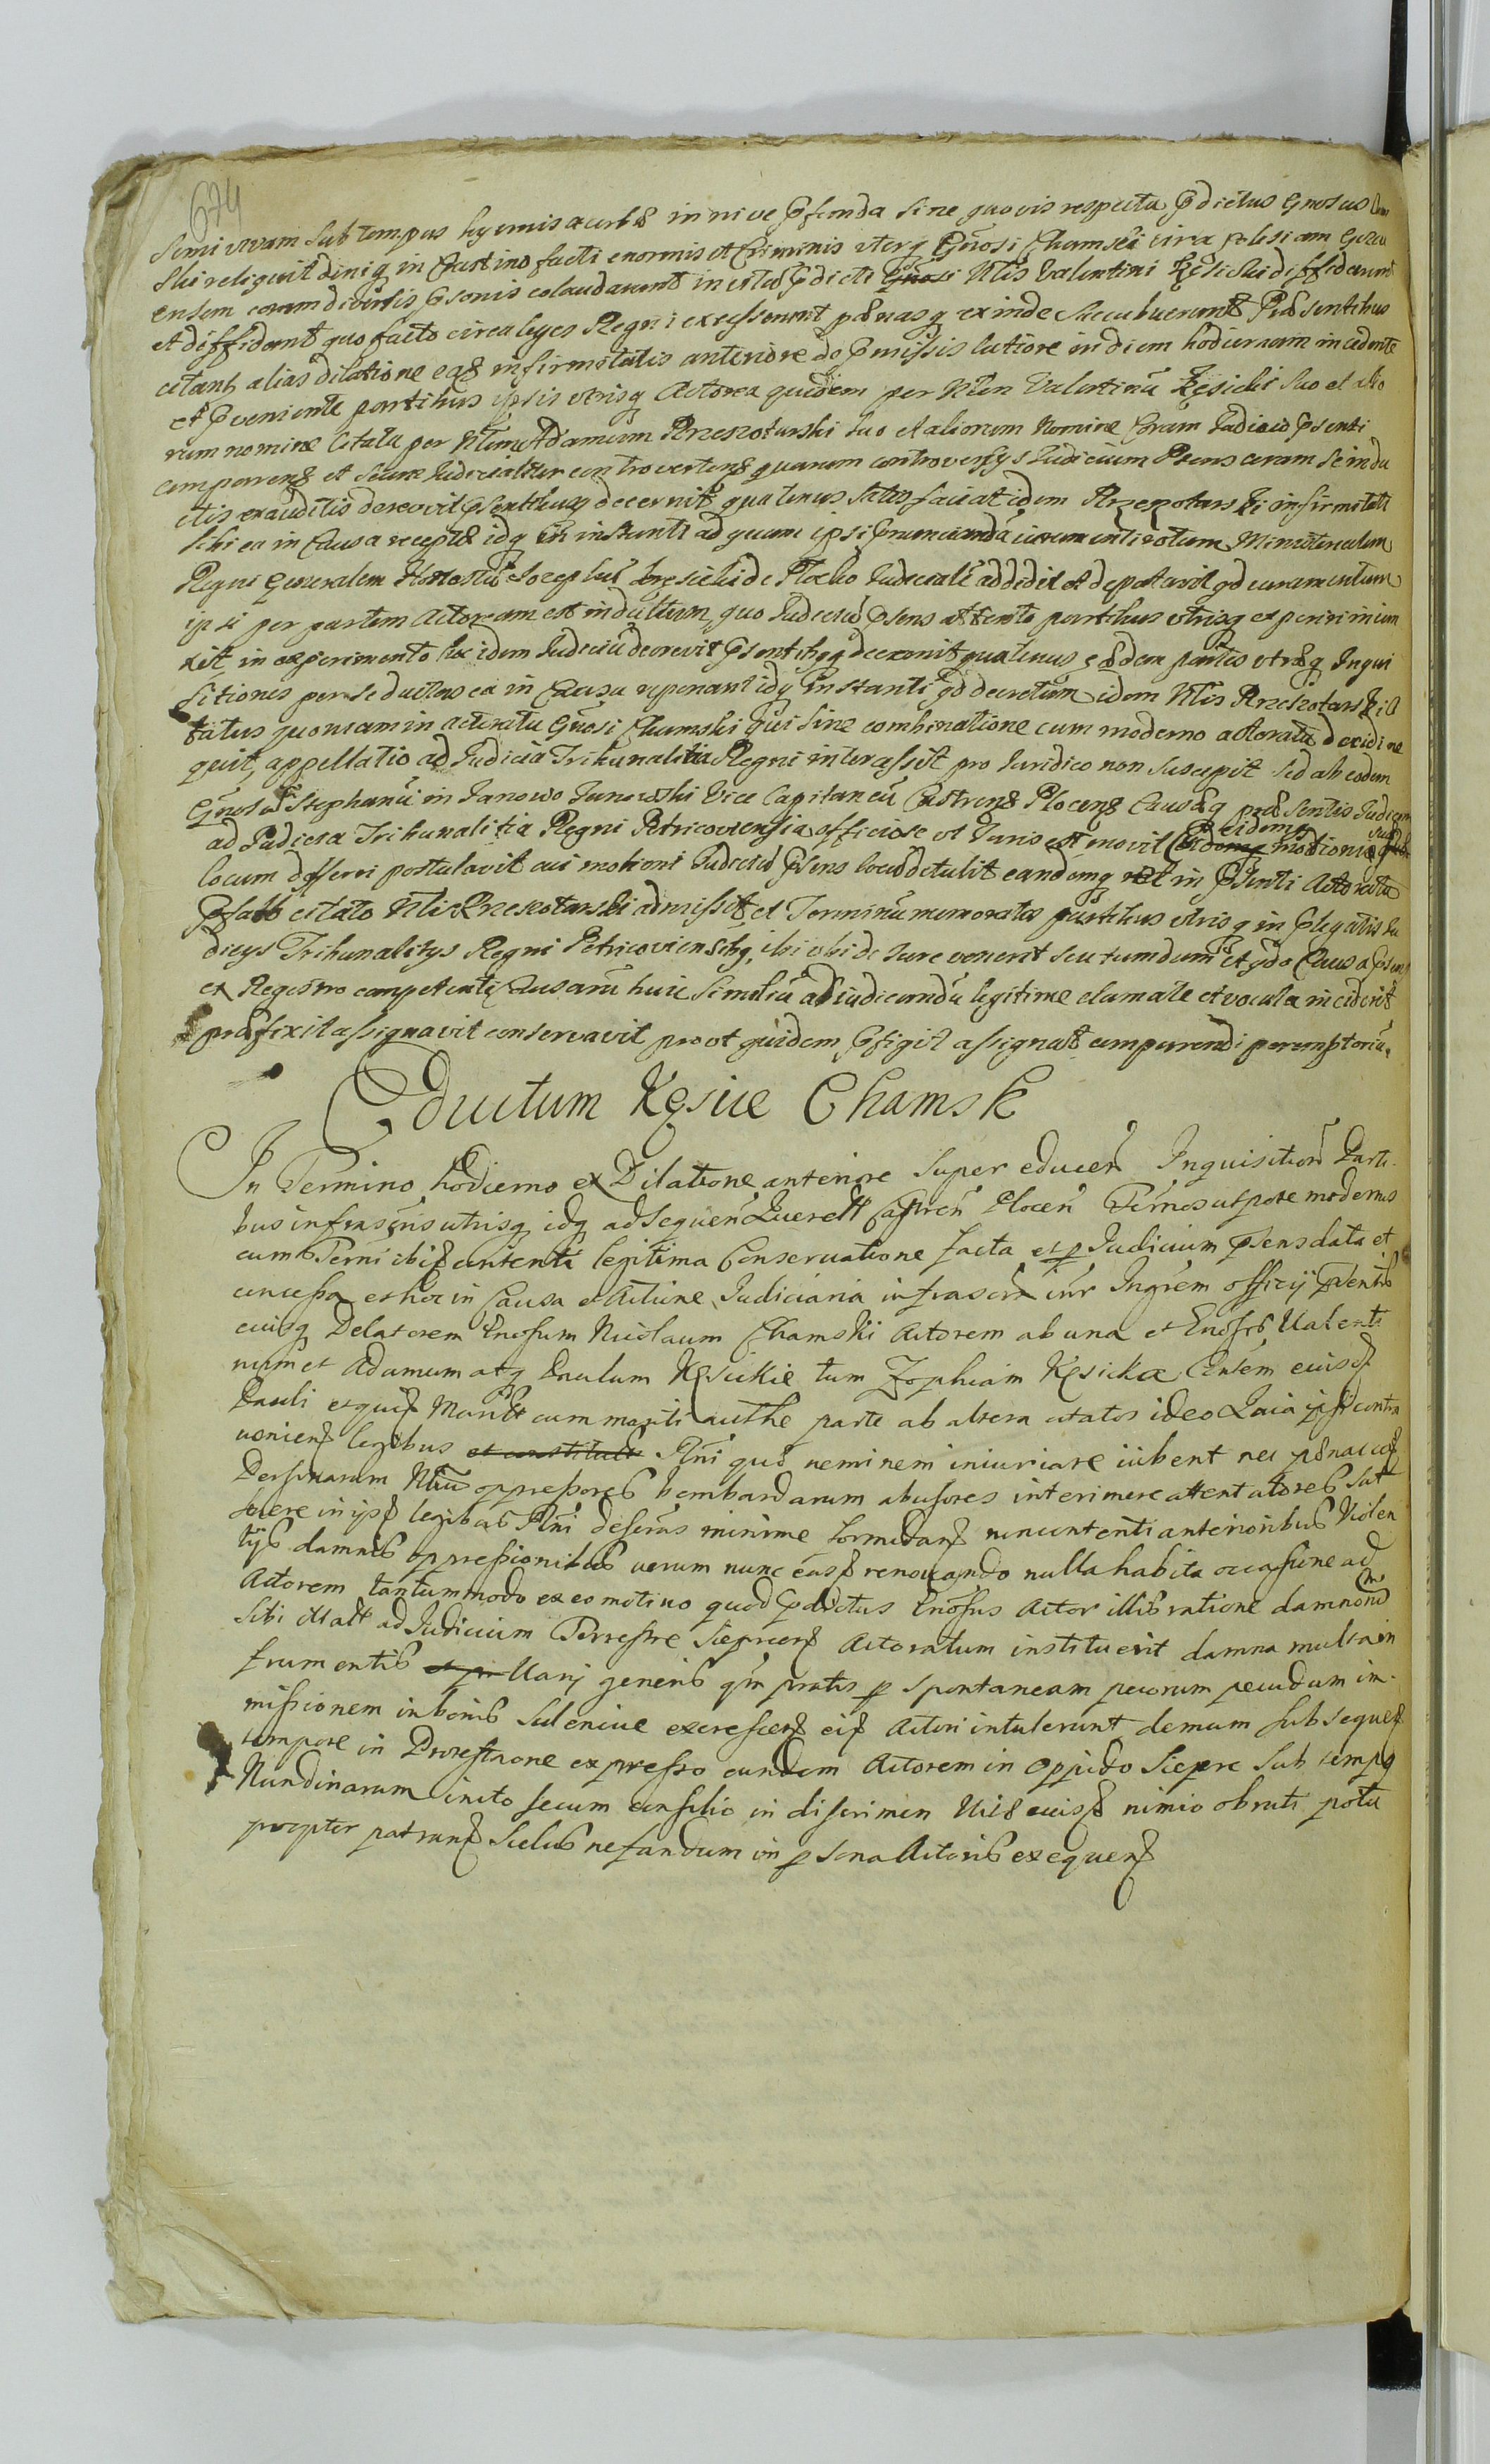 674
Semi vivam sub tempus hyemis acerbæ in nive Pfunda sine quovis respectu Pdictus Gnosus Cham
ski reliquit deniq in Castino facti enormis et Criminis uterq Gnosi Chamski circa Eclesiam Gozu
ensem coram diversis Psonis colaudarunt in vitæ Pdicti Gnosi Nlis Valentini Kęsicki diffidarunt
et diffidant quo facto circa leges Regni excesserunt pænasq exinde succubuerunt Præsentibus
citant alias dilatione eaq infirmitatis anteriore de Pmissis latiore in diem hodiernam incidente
et Pveniente partibus ipsis utrisq Actorea quidem per Nlem Valentinū Kęsicki suo et alio
rum nomine Citata per Nlem Adamum Rzeszotarski suo et aliorum Nomine Coram Judicio Psenti
comparenʒ et secum Judicialiter controvertenʒ quarum controversijs Judicium Psens coram se indu
ctis exauditis decrevit Psentibusq decernit quatenus satis faciat idem Rzeszotarski infirmitati
sibi ea in Causa receptæ idq in instanti ad quam ipsi Pnunciandā iuramenti rotam Ministerialem
Regni Generalem Honestū Josephū Kęsicki de Płocko Judiciale addidit et deputavit qd iuramentum
ipsi per partem Actoream est indultum, quo Judiciū Psens attento partibus utrisq experiri iniun
xit, in experimento hoc idem Judiciū decrevit Psentibqq decernit quatenus eædem partes utræq Inqui
sitiones per se ductas ea in Causa reponant idq in instanti qd decretum idem Nlis Rzeszotarski Ci
tatus quoniam in Actoratu Gnosi Chamski qui sine combinatione cum moderno actoratu decidi ne
quit, appellatio ad Judicia Tribunalitia Regni intercessit pro Juridico non suscepit sed ab eodem
Gnosum Stephanū in Janowo Janowski Vice Capitaneū Castrenʒ Plocenʒ Causæq præsentis Judicem
ad Judicia Tribunalitia Regni Petricoviensia officiose ut Juris est movit Eidemq Eidemq motioni suæ
locum defferri postulavit cui motioni Judiciū Psens locū detulit eandemq et in Psenti Actoratu
Pfato citato Nli Rzeszotarski admissit et Terminū memoratis partibus utrisq in Plegatis Ju
dicys Tribunalitys Regni Petricoviensibq, ibi ubi de Jure venerit seu tum dum et qdo Causa Psens
ex Registro competenti Causarū huic similiū ad iudicandū legitime clamata et vocata inciderit
præfixit assignavit conservavit prout quidem Pfigit assignat comparendi peremptoriū.
Eductum Kęsice Chamsk
In Termino hodierno ex Dilatione anteriore super educen Inquisition Parti-
bus infrascris utrisq idq ad sequen Querell Castren Plocen Ternos utpote modernus
cum Terni ibiꝫ contenti legitima Conservatione facta et p Judicium Psens data et
concessa et hoc in Causa et Actione Judiciaria infrascr inr Ingrem officij Psentis
eiusq Delatorem Gnosum Nicolaum Chamski Actorem ab una et Gnosos Valenti
num et Adamum atq Paulum Kęsickie tum Zophiam Kęsicka Consem eiusꝫ
Pauli et quiꝫ Marit cum mariti authe parte ab altera citatos ideo Quia ipsi contra
venienʒ legibus et constitut Rni quæ neminem iniuriare iubent nec pænas eoꝫ
Personarum Nliu oppressores bombardarum abusores interimere attentatores sat
luere in ijsꝫ legibus Rni descras minime formidanʒ non contenti anterioribus Violen
tijs damnis oppressionibus verum nunc easꝫ renovando nulla habita occasione ad
Actorem tantummodo ex eo motivo quod Pdictus Gnosus Actor illis ratione damnoru
sibi illatt ad Judicium Terrestre Sieprcenʒ Actoratum instituerit damna multa in
frumentis et p Varij generis qm pratis p spontaneam pecorum pecudum im-
missionem in bonis Suleniue excrescenʒ eiꝫ Actori intulerunt demum subsequenʒ
tempore in Protestaone expresso eundem Actorem in Oppido Siepre sub tempq
Nundinarum inito secum consilio in discrimen Vitæ eiusꝫ nimio obruti potu
propter patranʒ Scelus nefandum in p sona Actoris exequenʒ